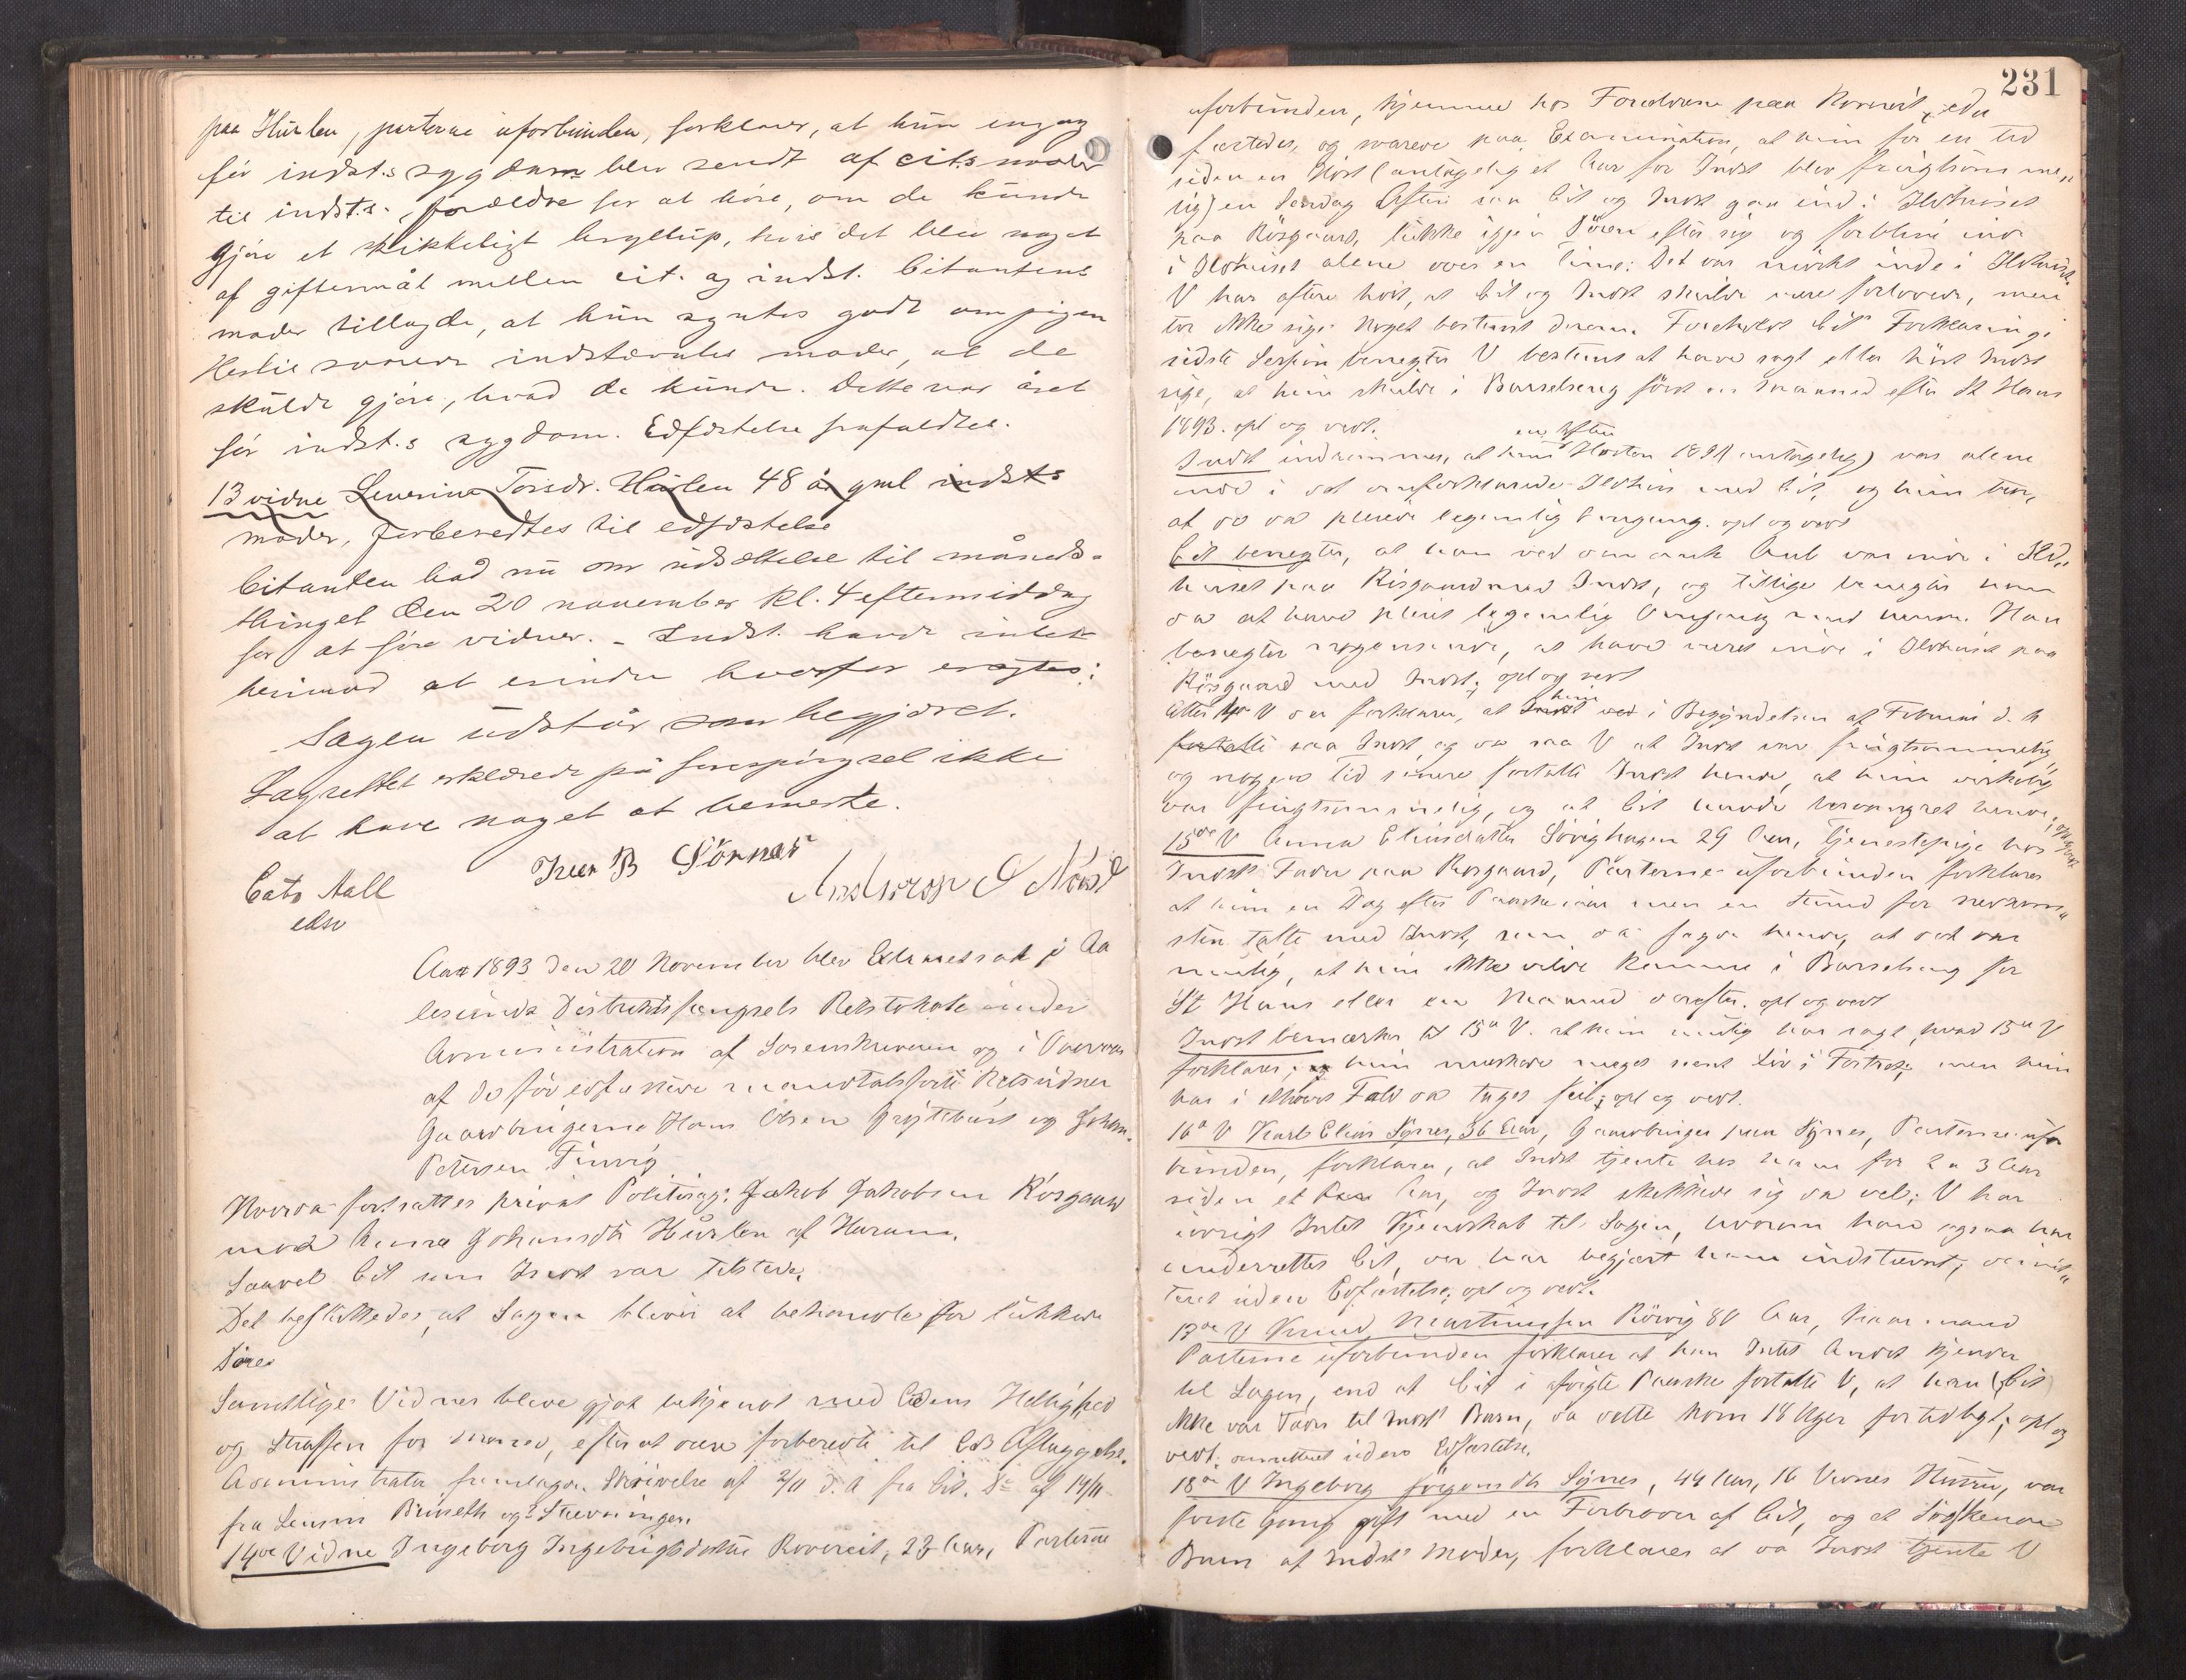 paa Hurlen, parterne uforbunden, forklarer, at hun engang
før indst.s sygdom blev sendt af cit.s moder
til indst.s forældre for at høre, om de kunde
gjøre et skikkeligt bryllup, hvis det blev noget
af giftermål mellem cit. og indst. Citantens
moder tillagde, at hun syntes godt om pigen
Hertil svarede indstævntes moder, at de
skulde gjøre, hvad de kunde. Dette var året
før indst.s sygdom. Edfæstelse frafaldtes.
13 vidne Severine Torsdr. Hurlen 48 år gml indst.s
moder, forberedtes til edfæstelse
Citanten bad nu om udsættelse til måneds-
thinget den 20 november kl. 4 eftermiddag
for at føre vidner. - Indst. havde intet
herimod at erindre hvorfor eragtes:
Sagen udstår som begjæret.
Lagrettet erklærede på forespørgsel ikke
at have noget at bemerke.
Cato Aall
edsv
Iver B Sörnes
Aar 1893 den 20 November blev Extraret sat i Aa
lesunds Distriktsfængsels Retslokale under
Administration af Sorenskriveren og i Overvær
af de før edfæstede mandtalsførte Retsvidner
Gaardbrugerne Hans Olsen Grytebust og Johan
Petersen
Hvorda fortsattes privat Politisag: Jakob Jakobsen Rösgaard
mod Anna Johansdtr Hurlen af Haram.
Saavel Cit som Indst var tilstede.
Det besluttedes, at Sagen bliver at behandle for lukkede
Døre
Samtlige Vidner bleve gjort bekjendt med Edens Hellighed
og Straffen for Mened, efterat være forberedte til Eds Aflæggelse.
Administrator fremlagde Skrivelse af 2/11 d. A fra Cit. Do af 14/11
fra Lensm Brunseth og 2 Stævninger.
14de Vidne Ingeborg Ingebrigtsdatter Roveveit, 23 Aar, Parterne
231
uforbunden, hjemme hos Forældrene paa, ed
fæstedes, og svarede paa Examination, at hun for en tid
siden en Høst (antagelig et Aar før Indst blev frugtsomme
lig) en Søndag Aften saa Cit og Indst gaa ind i Ildhuset
paa Rösgaard, lukke igjen Dören efter sig og forblive inde
i Ildhuset alene over en Time; Det var mörkt inde i Ildhuset
V har oftere hört, at Cit og Indst skulde være forlovede, men
tör ikke sige Noget bestemt derom. Foreholdt Cits Forklaring i
sidste Session benegter V bestemt at have sagt eller hört Indst
sige, at hun skulde i Barselseng först en Maaned efter St Hans
1893. opl og vedt.
en Aften
Indst indrømmer, at hun Høsten 1891 (antagelig) var alene
inde i det omforklarede Ildhus med Cit, og hun
at de da pleiede legemlig Omgang. opl og vedt
Cit benegter, at han ved omspurgte Anl var inde i Ild
huset paa Rösgaard med Indst, og tillige benegter han
da at have pleiet legemlig Omgang med hende. Han
benegter nogensinde, at have været inde i Ildhuset paa
Rösgaard med Indst; opl og vedt
Atter 14de V der forklarer, at hun i Begyndelsen af Februar d. A
saa Indst og da saa V at Indst var frugtsommelig,
og nogen tid senere fortalte Indst hende, at hun virkelig
var frugtsommelig, og at Cit havde besvangret hende; opl og vedt.
15de V Anna Eliasdatter Sövighagen 29 Aar, Tjenestepige hos
Indsts Fader paa Rosgaard, Parterne uforbunden forklarer
at hun en Dag efter Paaske iaar men en Stund før
talte med Indst, som da sagde hende, at det var
muligt, at hun ikke vilde komme i Barselseng før
St Hans eller en Maaned derefter. opl og vedt
Indst bemærker til 15de V. at hun mulig har sagt, hvad 15de V
forklarer; hun mærkede meget sent Liv i Fostret; men hun
har i ethvert Fald da taget feil; opl og vedt.
16de V Karl Elias Synes, 36 Aar, Gaardbruger paa Synes, Parterne ufor
bunden, forklarer, at Indst tjente hos ham for 2 a 3 Aar
siden et Aar, og Indst skikkede sig da vel; V har
iøvrigt Intet Kjendskab til Sagen, hvorom han ogsaa har
underrettet Cit, der har begjært ham indstævnt; dimit
teret uden Edfæstelse; opl og vedt.
17de V Knud Martinussen Rövig 80 Aar, Kaarmand
Parterne uforbunden forklarer at han Intet Andet kjender
til Sagen, end at Cit i afvigte Paaske fortalte V, at han (Cit)
ikke var Fader til Indsts Barn, da dette kom 18 Uger for tidligt; opl og
vedt. dimitteret uden Edfæstelse.
18de V Ingeborg Jörgensdtr Synes, 44 Aar, 16 Vidnes Hustru, var
første Gang gift med en Farbroder af Cit, og et Søskende
Barn af Indsts Moder, forklarer at da Indst tjente V